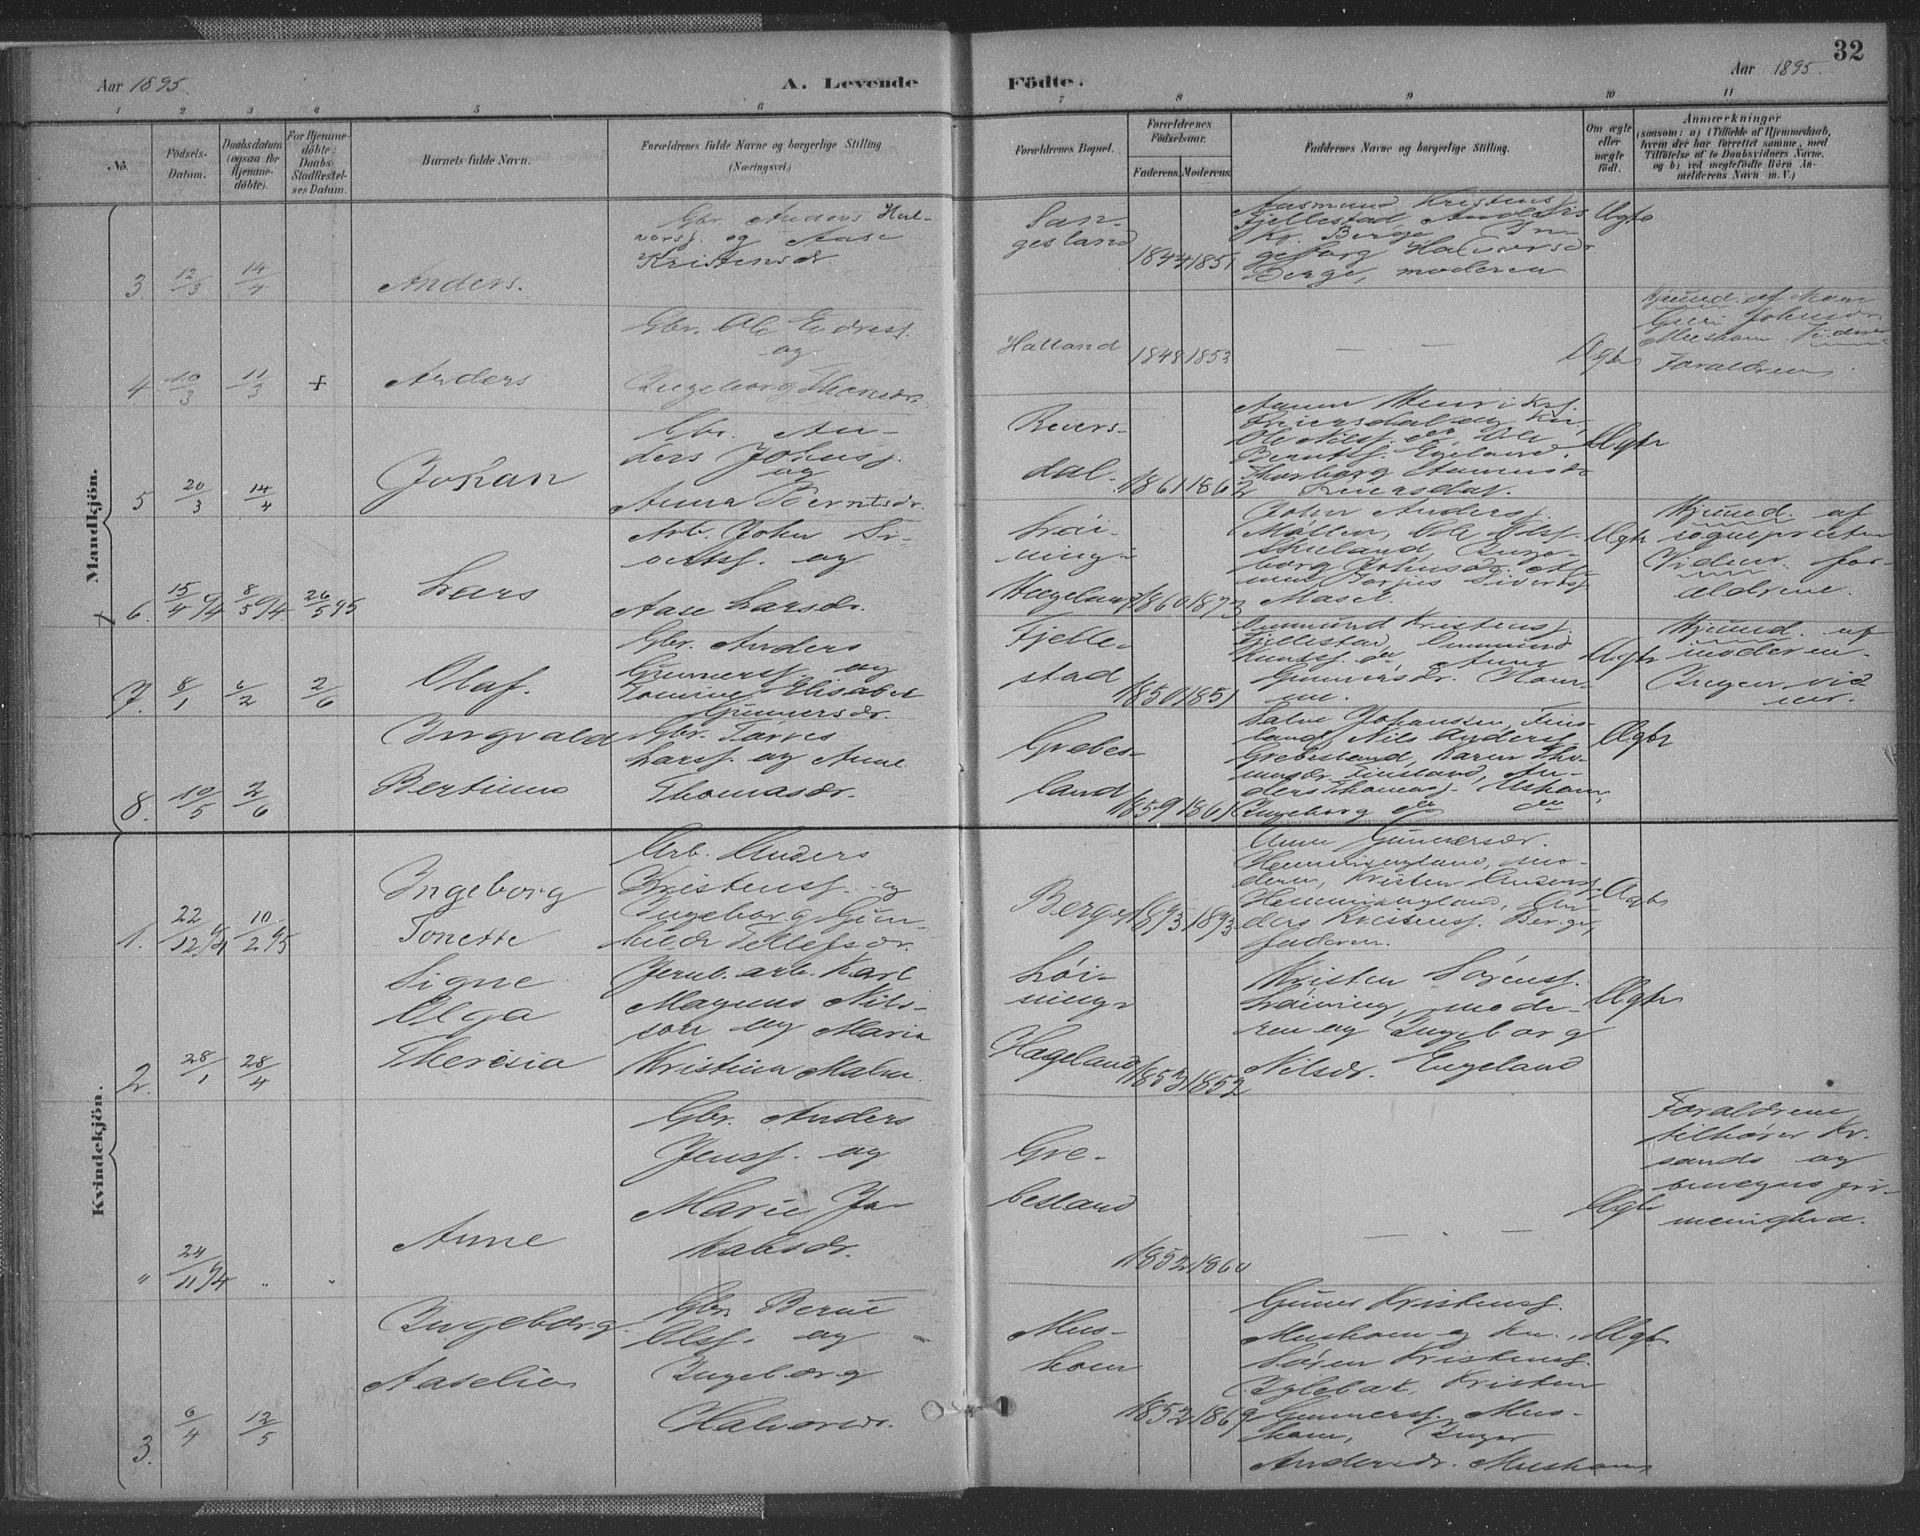 32
Aar 1895.
A. Levende Födte.
Aar 1895.
1 2 3 4 5 6 7 8 9 10 11
No.
Födsels-
Datum.
Daabsdatum
(ogsaa for
Hjemme-
döbte).
For Hjemme-
döbte:
Daabs-
Stadfæstel-
ses Datum.
Barnets fulde Navn.
Forældrenes fulde Navne og borgerlige Stilling
(Næringsvei.)
Forældrenes Bopæl.
Forældrenes
Födselsaar.
Faderens. Moderens.
Faddernes Navne og borgerlige Stilling.
Om ægte
eller
uægte
födt.
Anmærkninger
(saasom: a) i Tilfælde af Hjemmedaab,
hvem der har forrettet samme, med
Tilföielse af to Daabsvidners Navne,
og b) ved uægtefödte Börn An-
melderens Navn m. V.)
Mandkjön.
3. 12/3 14/4
Anders.
Gbr. Anders Hal-
vorss. og Aase
Kristensdr.
San-
gesland
1844 1851
Aasmund Kristens.
Fjellestad,
Kr. Berge, In-
geborg Halvorsdr.
Berge, moderen
Ægte
4. 10/3 11/3 +
Anders
Gbr. Ole Endress.
og
Ingeborg Thomsdr.
Halland
1848 1853
— —
Ægte
Hjemmd. af
Guri Johnsdr.
Musham. Vidner
Forældrene
5 20/3 14/4
Johan
Gbr. An-
ders Johns.
og
Anna Berntsdr.
Reiers-
dal.
1861 1862
Henriks.
Reiersdal og Kn.,
Ole Nils. do, Ole
Bernts. Egeland,
Thorborg
Reiersdal.
Ægte
6. 15/4 94 8/5 94 26/5 95
Lars
Arb. John Si-
verts. og
Aase Larsdr.
Løi-
nings-
Hægeland
1860 1873
John Anders.
Møllen, Ole Ols.
Skuland, Inge-
borg Johnsdr.
Siverts.
Ægte
Hjemmd. af
sognepresten
Vidner. for-
ældrene.
7. 8/1 6/2 2/6
Olaf.
Gbr. Anders
Gunners. og
Tomine Elisabet
Gunnersdr.
Fjelle-
stad
1850 1851
Kristens.
Fjellestad,
Knuts. do, Anne
Gunnersdr.
Ægte
Hjemmd. af
moderen.
Ingen vid-
ner.
8. 10/5 2/6
Ingvald
Bertinus
Gbr. Tarjes
Larss. og Anne
Thomasdr.
Grebes-
land
1859 1861
Salve Johanssen, Fins-
land, Nils Anders.
Grebesland, Karen Tho-
masdr. Finsland, An-
ders Thomas.
Ingeborg do do
Ægte
Kvindekjön.
1. 22/12 94 10/2 95
Ingeborg
Tonette
Arb. Anders
Kristens. og
Ingeborg Gun-
hilde Tellefsdr.
Berge
1873 1873
Anne Gunnersdr.
mo-
deren, Kristen Anders.
An-
ders Kristens. Berge,
faderen.
Ægte
2. 28/1 28/4
Signe
Olga
Theresia
Jernb. arb. Karl
Magnus Nils-
son og Maria
Kristina Malm.
Løi-
nings-
Hægeland
1853 1852
Kristen Sørens.
Løining, mode-
ren og Ingeborg
Nilsdr. Engeland
Ægte
" 24/11 94 " "
Anne
Gbr. Anders
Jens. og
Marie Ja-
kobsdr.
Gre-
besland
1852 1860
— —
Ægte
Forældrene
tilhører Kr.
sands og
omegns fri-
menighed.
3. 6/4 12/5
Ingeborg
Aaselie
Gbr. Berne
Ols. og
Ingeborg
Halvorsdr.
Mus-
hom
1852 1869
Gunner Kristens.
Mushom og Kn.,
Søren Kristens.
Iglebæk, Kristen
Gunners. Mus-
hom, Inger
Andersdr. Mushom
Ægte